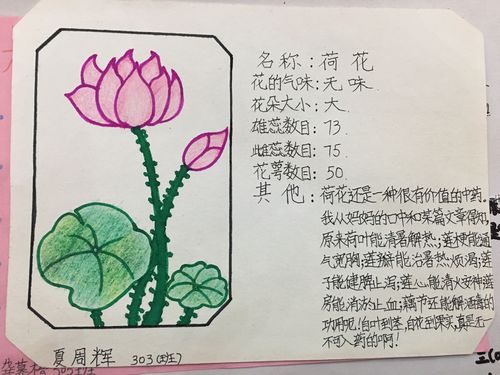 名称:荷花
花的气味:无味
花朵大小:大
雄蕊数目:73
雌蕊数目:75
花萼数目:50
其他:荷花还是一种很有价值的中药。
我从妈妈的口中和某篇文章得知,
原来荷叶能清暑解热;莲梗能通
气宽胸;莲瓣能治暑热烦渴;莲
子能健脾止泻;莲心能清火安神;莲
房能消淤止血;藕节还能解酒毒的
功用呢!自叶到茎,自花到果实,真是无一
不可入药的啊!
夏周辉 303(班)